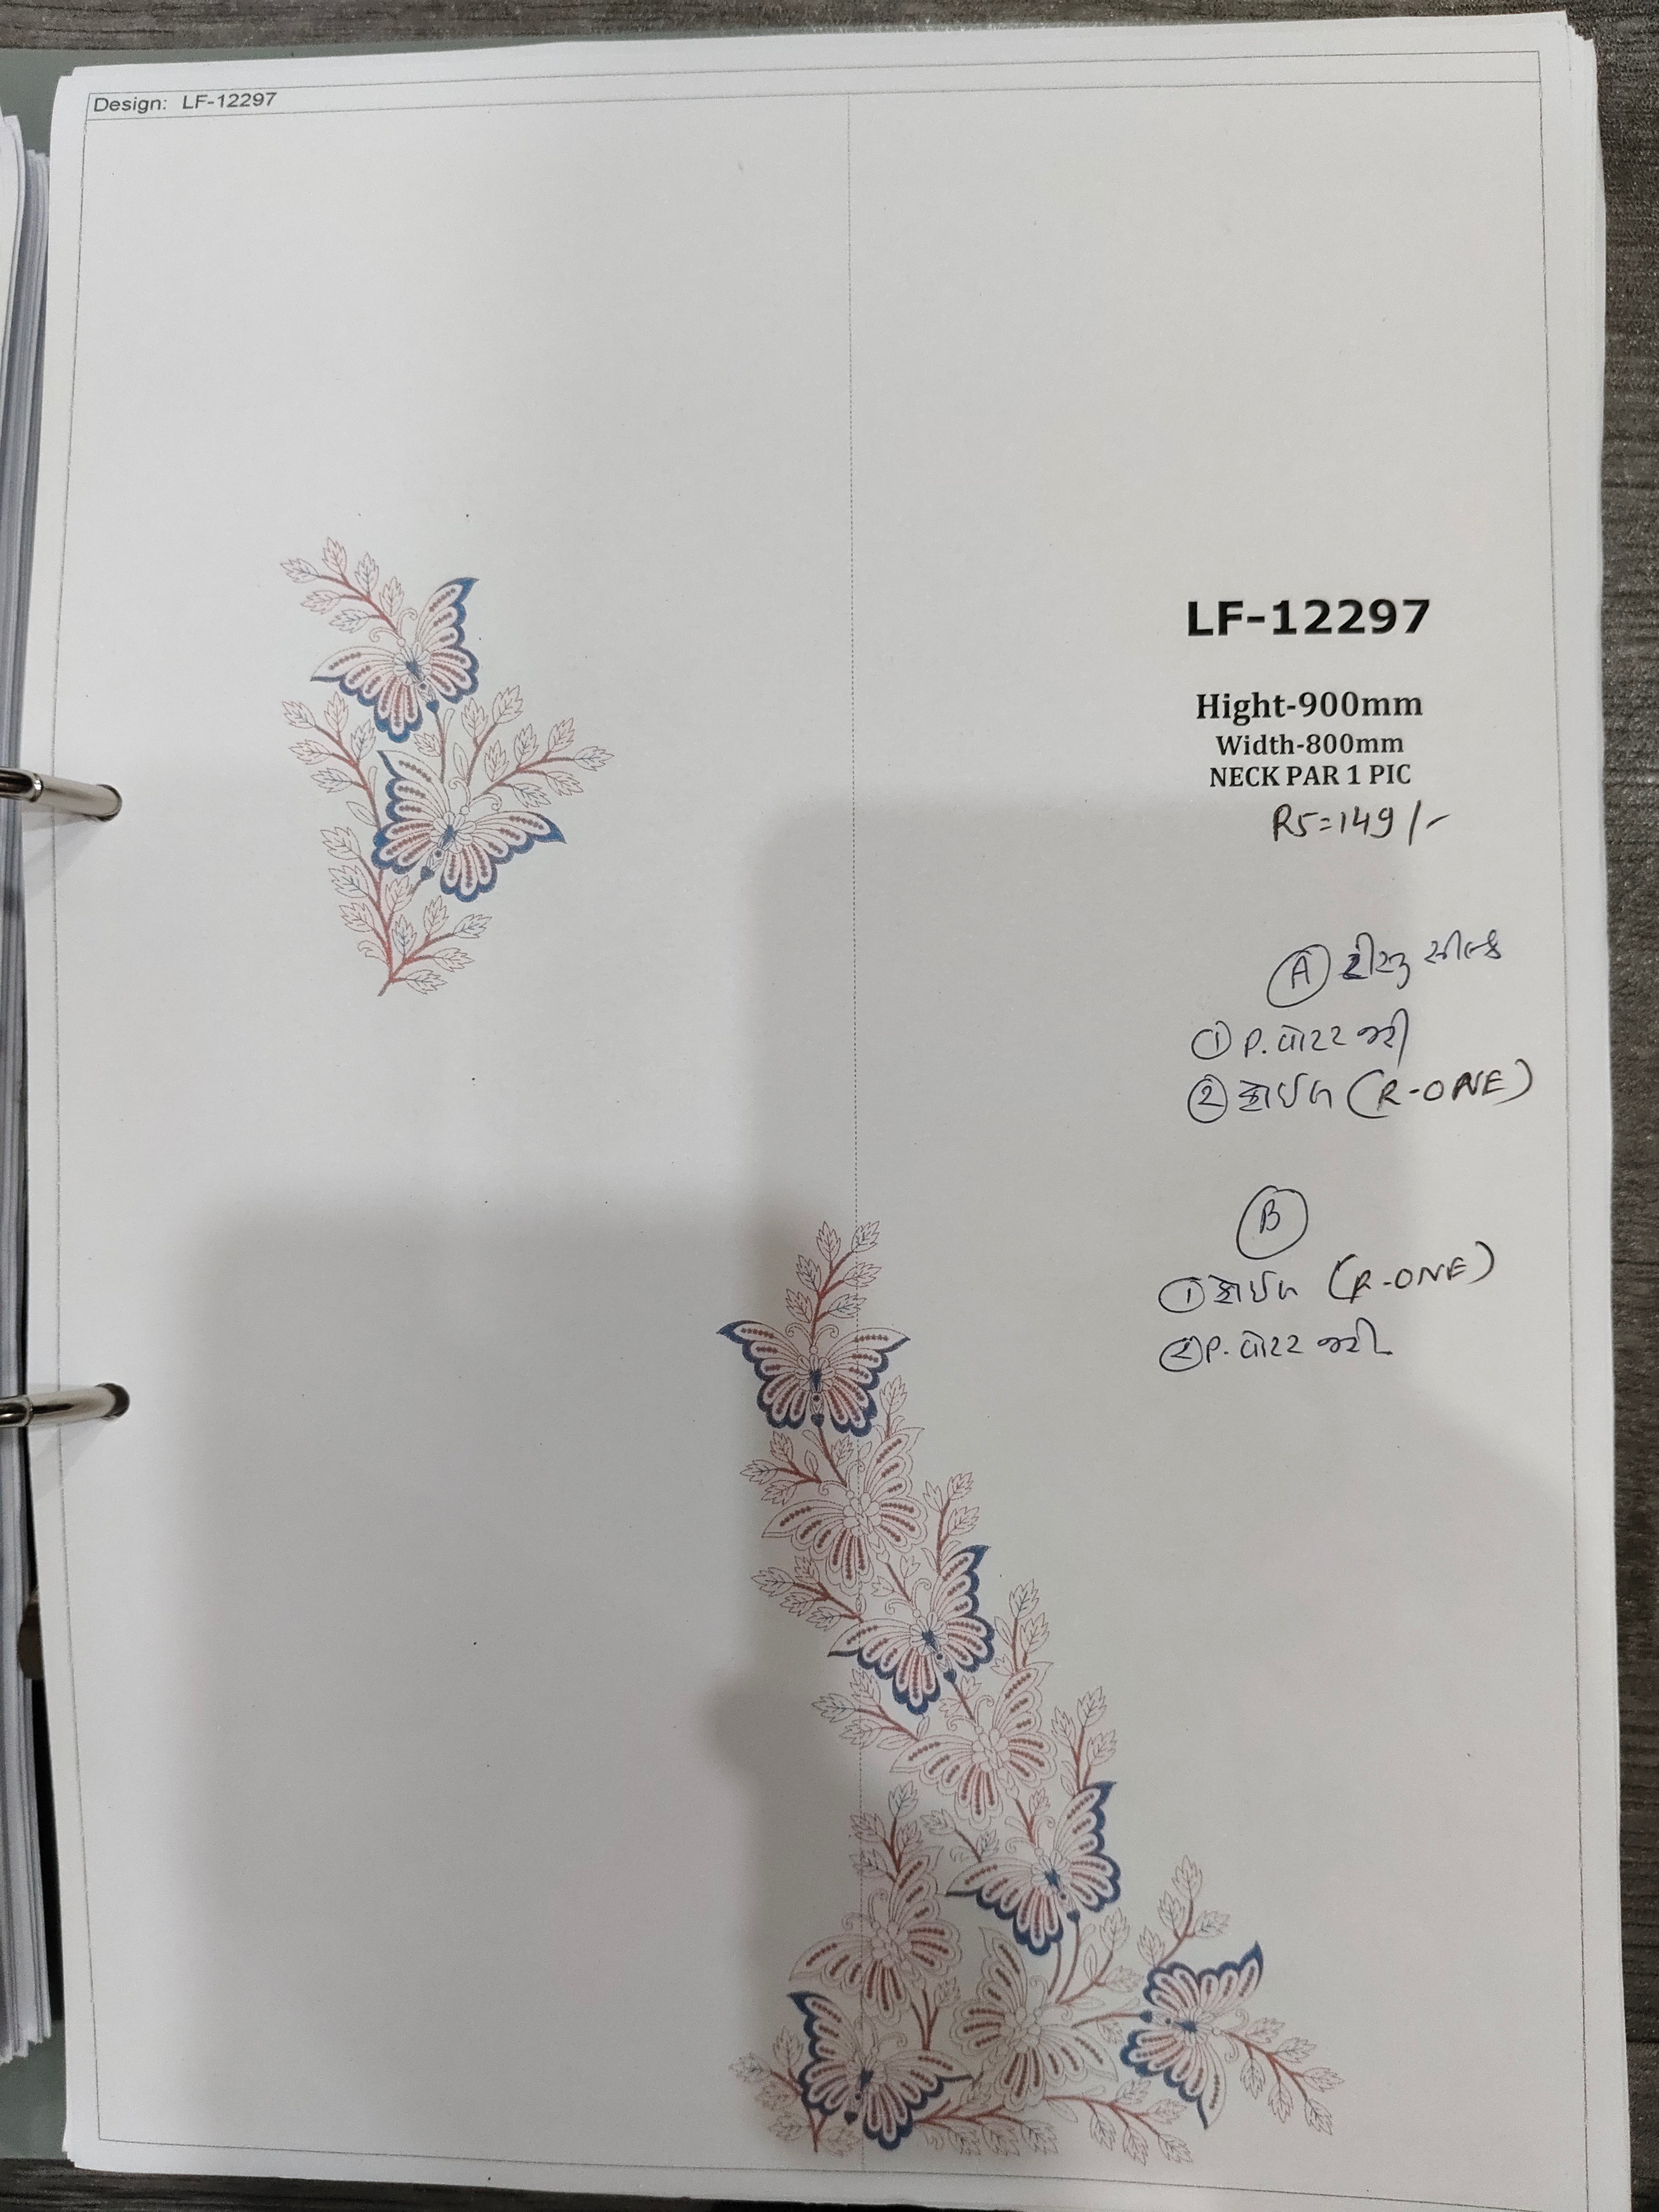 Design: LF-12297
LF-12297
Hight-900mm
Width-800mm
NECK PAR 1 PIC
RS=149/-
A
① P. વોટર જરી
② કોઈન (R-ONE)
B
① કોઈન (R-ONE)
② P. વોટર જરી